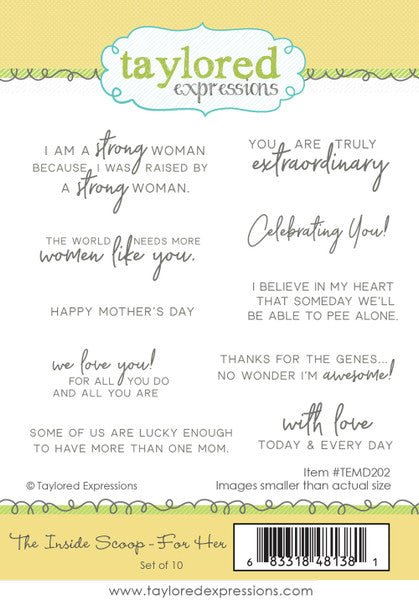 taylored
expressions
I AM A strong WOMAN
BECAUSE I WAS RAISED BY
A strong WOMAN.
YOU ARE TRULY
extraordinary
THE WORLD NEEDS MORE
women like you.
Celebrating You!
HAPPY MOTHER'S DAY
I BELIEVE IN MY HEART
THAT SOMEDAY WE'LL
BE ABLE TO PEE ALONE.
we love you!
FOR ALL YOU DO
AND ALL YOU ARE
THANKS FOR THE GENES...
NO WONDER I'M awesome!
SOME OF US ARE LUCKY ENOUGH
TO HAVE MORE THAN ONE MOM.
with love
TODAY & EVERY DAY
Item #TEMD202
© Taylored Expressions
Images smaller than actual size
The Inside Scoop - For Her
Set of 10
6 83318 48138 1
www.tayloredexpressions.com